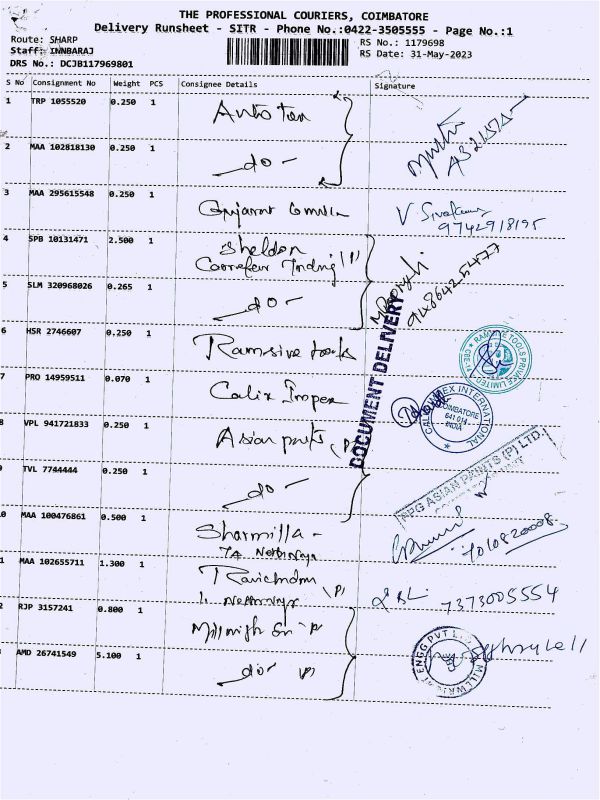 THE PROFESSIONAL COURIERS, COIMBATORE
Delivery Runsheet - SITR - Phone No.:0422-3505555 - Page No.:1
Route: SHARP
RS No.: 1179698
Staff: INNBARAJ
RS Date: 31-May-2023
DRS No.: DCJB117969801
S No Consignment No Weight PCS Consignee Details Signature
1 TRP 1055520 0.250 1 Auto Tan
2 MAA 102818130 0.250 1 -do-
3 MAA 295615548 0.250 1 Gujarat V Sivakumar
9742918195
4 SPB 10131471 2.500 1 Sheldon
(P)
5 SLM 320968026 0.265 1 -do-
9486425477
DOCUMENT DELIVERY
6 HSR 2746607 0.250 1 Ramsive tools
RAMSIVE TOOLS PRIVATE LIMITED
7 PRO 14959511 0.070 1 Calix Impex
CALIX IMPEX INTERNATIONAL
COIMBATORE
641 014
INDIA
8 VPL 941721833 0.250 1 Asian paints (P)
PPG ASIAN PAINTS (P) LTD.
9 TVL 7744444 0.250 1 -do-
0 MAA 100476861 0.500 1 Sharmilla -
7A
7010820008
1 MAA 102655711 1.300 1 Ravichandran
(P)
7373005554
2 RJP 3157241 0.800 1
ENGG PVT LTD
MILLWRIGHT
AMD 26741549 5.100 1 -do- (P)